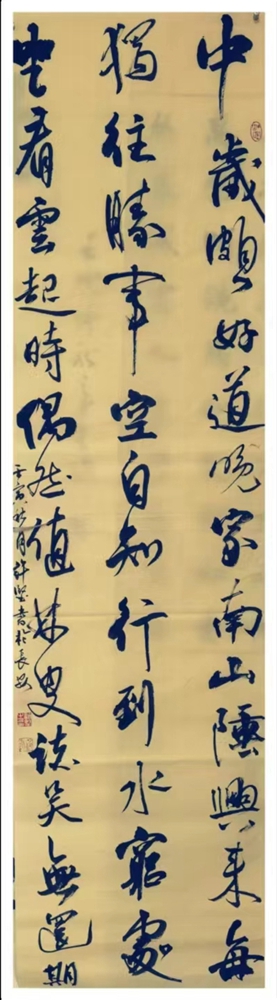 中歲頗好道晚家南山陲興來每
獨往勝事空自知行到水窮處
坐看雲起時偶然值林叟談笑無還期
壬寅秋月許堅書於長安